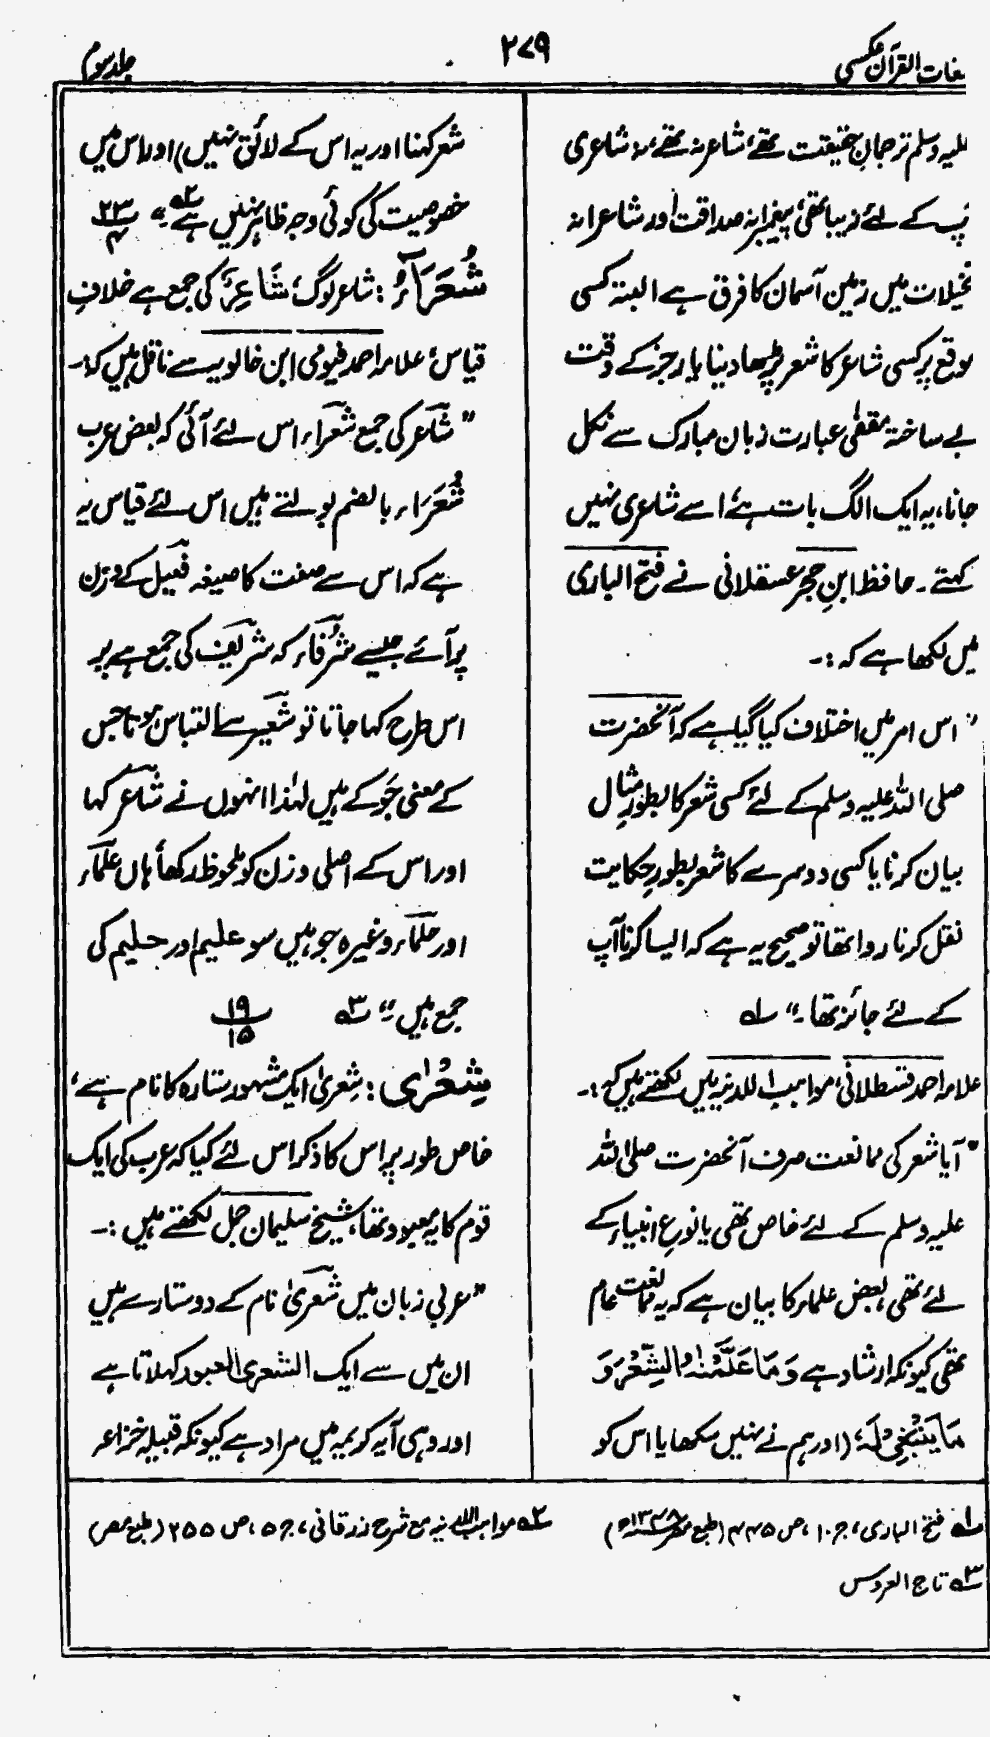 لغات القرآن عکسی
۲۷۹
جلد سوم
علیہ وسلم ترجمانِ حقیقت تھے، شاعر نہ تھے، نہ شاعری
آپ کے لئے زیبا تھی، پیغمبرانہ صداقت اور شاعرانہ
تخیلات میں زمین آسمان کا فرق ہے البتہ کسی
موقع پر کسی شاعر کا شعر پڑھا دینا یا رجز کے وقت
بے ساختہ مقفیٰ عبارت زبان مبارک سے نکل
جانا، یہ ایک الگ بات ہے، اسے شاعری نہیں
کہتے ۔ حافظ ابنِ حجر عسقلانی نے فتح الباری
میں لکھا ہے کہ :۔
" اس امر میں اختلاف کیا گیا ہے کہ آنحضرت
صلی اللہ علیہ وسلم کے لئے کسی شعر کا بطورِ مثال
بیان کرنا یا کسی دوسرے کا شعر بطورِ حکایت
نقل کرنا روا تھا تو صحیح یہ ہے کہ ایسا کرنا آپ
کے لئے جائز تھا ۔" لہ
علامہ احمد قسطلانی، مواہب اللدنیہ میں لکھتے ہیں کہ :۔
" آیا شعر کی ممانعت صرف آنحضرت صلی اللہ
علیہ وسلم کے لئے خاص تھی یا نوعِ انبیاء کے
لئے تھی، بعض علماء کا بیان ہے کہ یہ ممانعت عام
تھی کیونکہ ارشاد ہے وَمَا عَلَّمْنٰہُ الشِّعْرَ وَ
مَا یَنْبَغِیْ لَہٗ، (اور ہم نے نہیں سکھایا اس کو
شعر کہنا اور یہ اس کے لائق نہیں) اور اس میں
خصوصیت کی کوئی وجہ ظاہر نہیں ہے ۔" ۲ہ ۲۳/۴
شُعَرَآءُ : شاعر لوگ، شَاعِرٌ کی جمع ہے خلافِ
قیاس، علامہ احمد فیومی ابن خالویہ سے ناقل ہیں کہ :۔
" شاعر کی جمع شعراء اس لئے آئی کہ بعض عرب
شُعَرَاء بالضم بولتے ہیں اس لئے قیاس یہ
ہے کہ اس سے صفت کا صیغہ فعیل کے وزن
پر آئے جیسے شُرَفَاء کہ شریف کی جمع ہے پر
اس طرح کہا جاتا تو شعیر سے التباس ہوتا جس
کے معنی جَو کے ہیں لہٰذا انہوں نے شاعر کہا
اور اس کے اصلی وزن کو ملحوظ رکھا، ہاں عُلَمَاء
اور حُلَمَاء وغیرہ جو ہیں سو علیم اور حلیم کی
جمع ہیں ۔" ۳ہ ۱۹/۱۵
شِعْرٰی : شِعریٰ ایک مشہور ستارہ کا نام ہے،
خاص طور پر اس کا ذکر اس لئے کیا کہ عرب کی ایک
قوم کا یہ معبود تھا، شیخ سلیمان جمل لکھتے ہیں :۔
" عربی زبان میں شعریٰ نام کے دو ستارے ہیں
ان میں سے ایک الشعری العبور کہلاتا ہے
اور وہی آیہ کریمہ میں مراد ہے کیونکہ قبیلہ خزاعہ
۱ہ فتح الباری، ج ۱۰، ص ۴۴۵ (طبع مصر ۱۳۴۸ھ)
۲ہ مواہب اللدنیہ مع شرح زرقانی، ج ۵، ص ۲۵۵ (طبع مصر)
۳ہ تاج العروس